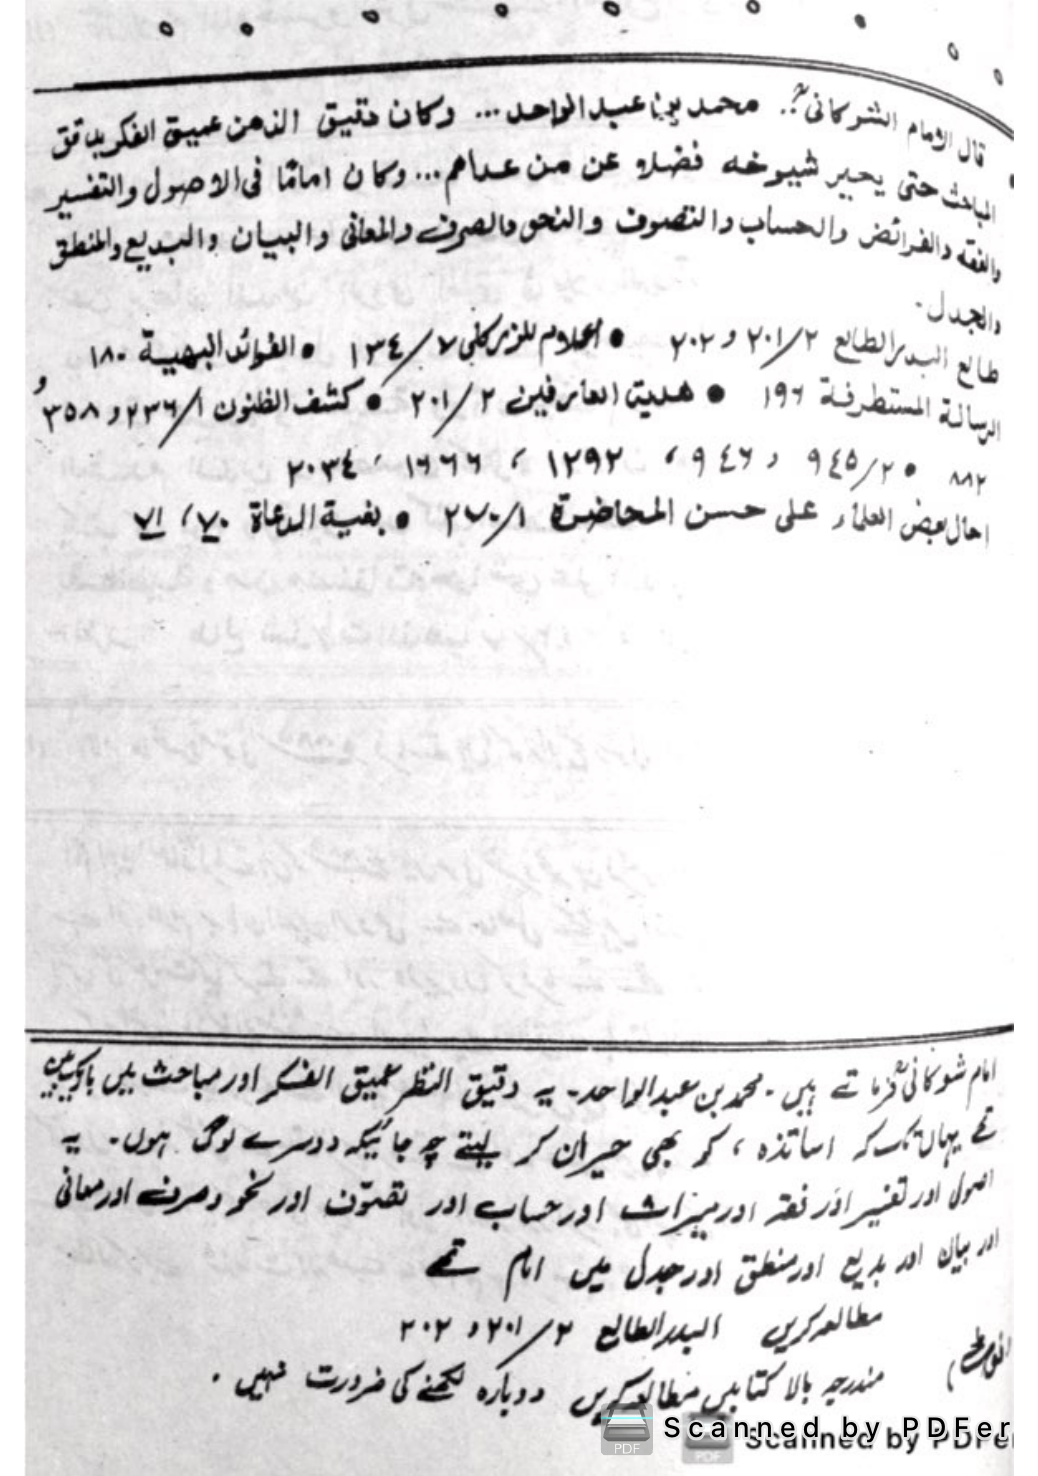 قال الامام الشوكانیؒ: محمد بن عبد الواحد ... وكان دقيق الذهن عميق الفكر يدقق
المباحث حتى يحير شيوخه فضلا عن من عداهم ... وكان اماما فى الاصول والتفسير
والفقه والفرائض والحساب والتصوف والنحو والصرف والمعانى والبيان والبديع والمنطق
والجدل.
طالع البدر الطالع ٢/٢٠١ و ٢٠٢ • اعلام للزركلى ٧/١٣٤ • الفوائد البهية ١٨٠
الرسالة المستطرفة ١٩٦ • هدية العارفين ٢/٢٠١ • كشف الظنون ١/٢٣٦ و ٣٥٨ و
٨٨٢ • ٢/٩٤٥ و ٩٤٦، ١٢٩٢، ١٦٦٦، ٢٠٣٤
احال بعض العلماء على حسن المحاضرة ١/٢٧٠ • بغية الدعاة ٧٠، ٧١
امام شوکانیؒ فرماتے ہیں۔ محمد بن عبدالواحد۔ یہ دقیق النظر عمیق الفکر اور مباحث میں باریک بین
تھے یہاں تک کہ اساتذہ، کو بھی حیران کر لیتے چہ جائیکہ دوسرے لوگ ہوں۔ یہ
اصول اور تفسیر اور فقہ اور میراث اور حساب اور تصوّف اور نحو و صرف اور معانی
اور بیان اور بدیع اور منطق اور جدل میں امام تھے
مطالعہ کریں البدر الطالع ٢/٢٠١ و ٢٠٢
(نوٹ) مندرجہ بالا کتابیں مطالعہ کریں دوبارہ لکھنے کی ضرورت نہیں.
Scanned by PDFer
Scanned by PDFer